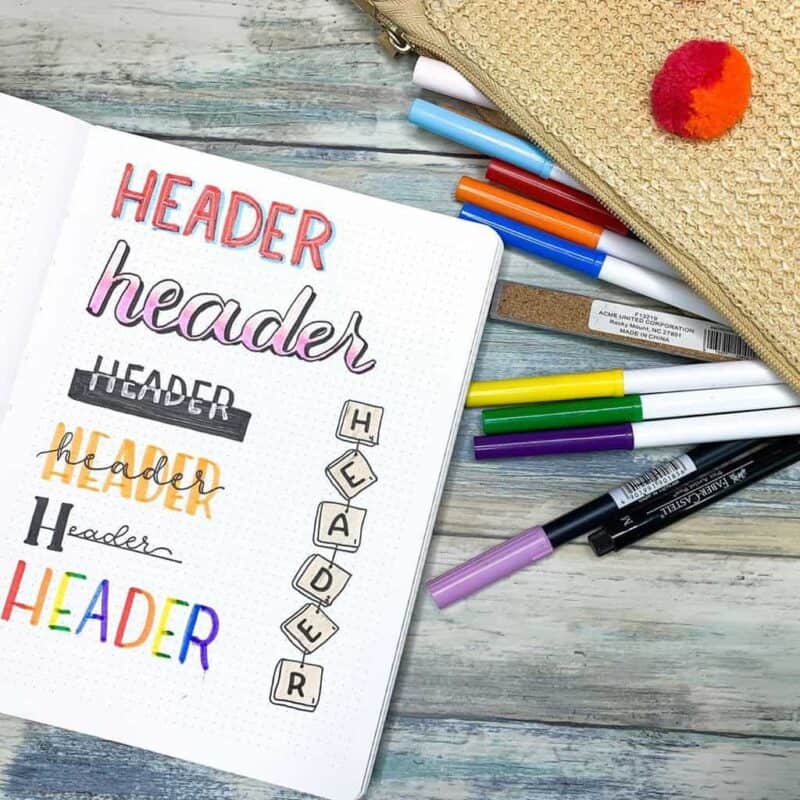 HEADER
header
HEADER
HEADER
header
Header
HEADER
H
E
A
D
E
R
F13219
ACME UNITED CORPORATION
Rocky Mount, NC 27801
MADE IN CHINA
FABER-CASTELL
Pitt Artist Pen